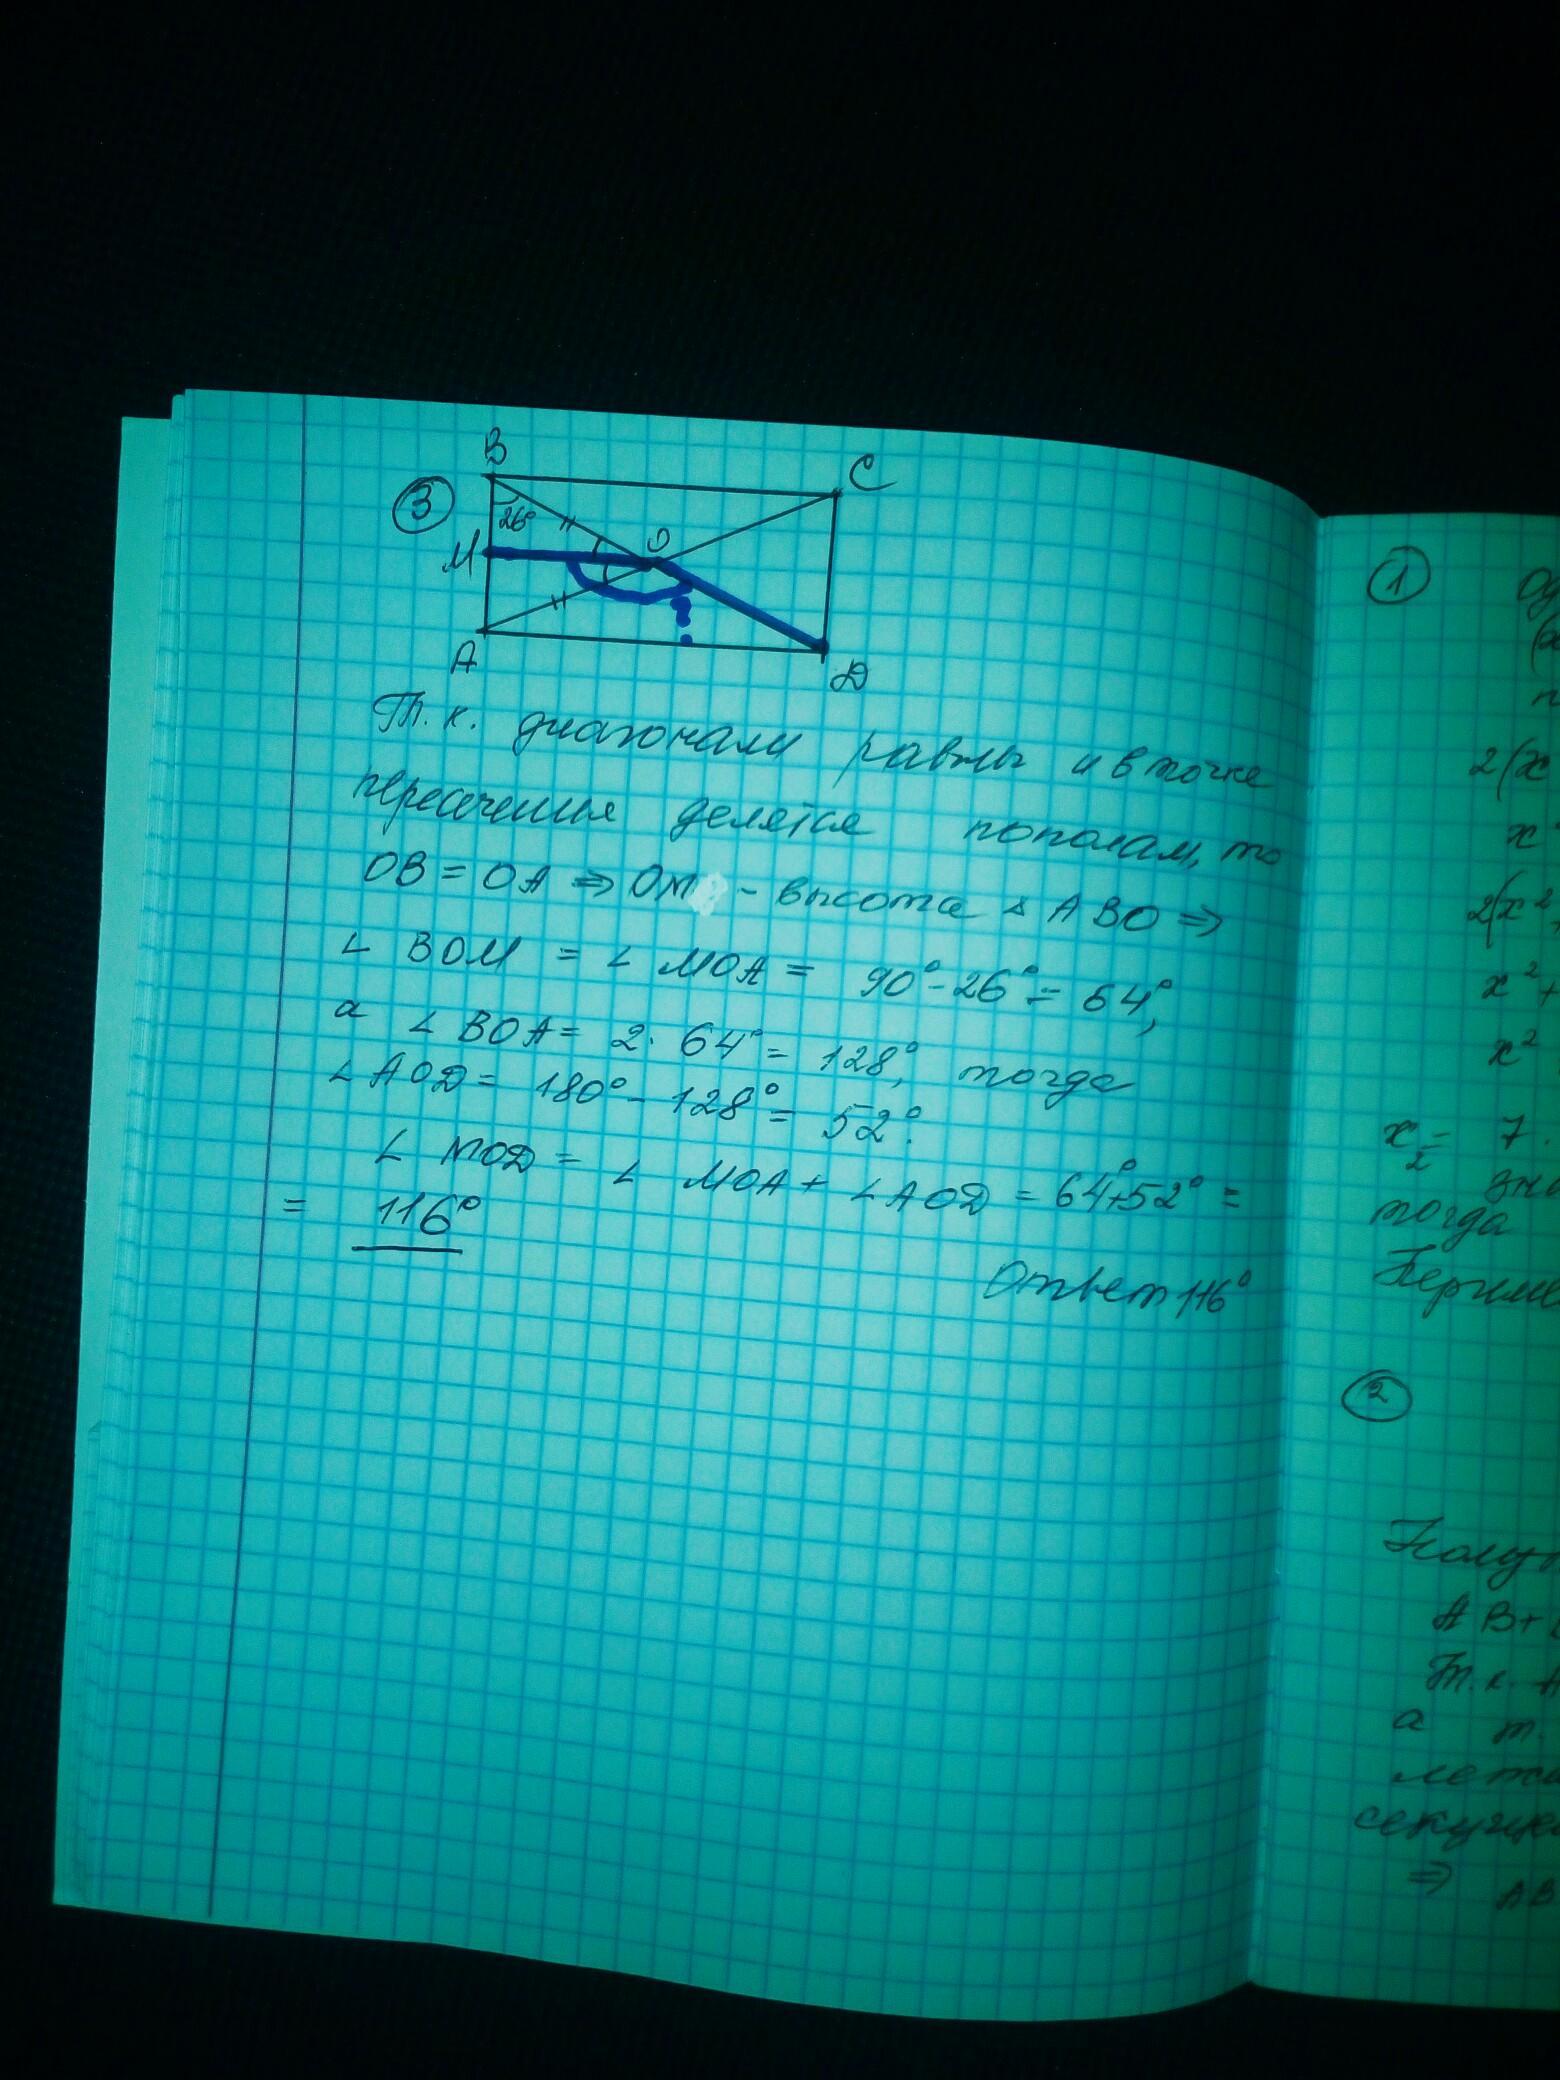 3
B
C
26°
M
O
A
D
?
Т.к. диагонали равны и в точке
пересеченья делятся пополам, то
OB = OA ⇒ OM - высота △ ABO ⇒
∠ BOM = ∠ MOA = 90° - 26° = 64°,
а ∠ BOA = 2 · 64° = 128°, тогда
∠ AOD = 180° - 128° = 52°.
∠ MOD = ∠ MOA + ∠ AOD = 64° + 52° =
= 116°
Ответ 116°
1
2(x
x
2(x²
x² +
x²
x₂ = 7.
тогда
2
A B +
Т.к. A
а т.
⇒ AB